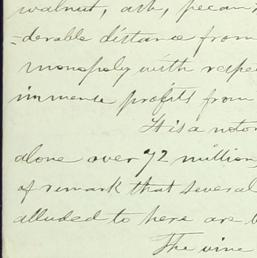 walnut, ash, pecan
=derable distance from
monopoly with respe
immense profits from
It is a notor
alone over 92 million
of remark that several
alluded to here are
The vine